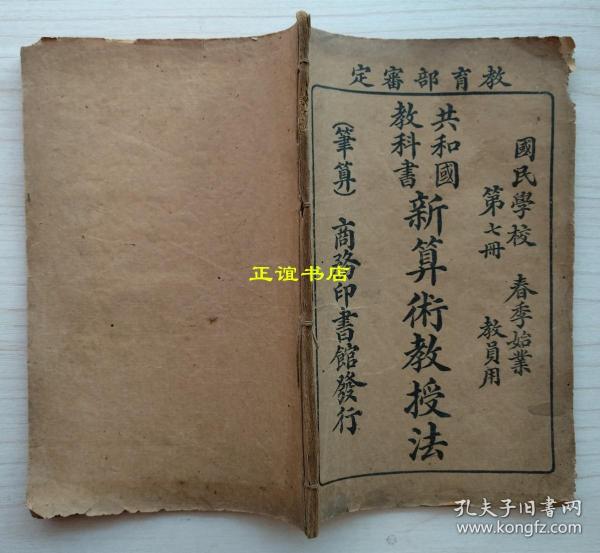 教育部審定
國民學校 春季始業
第七冊 教員用
共和國
教科書
新算術教授法
(筆算) 商務印書館發行
正谊书店
孔夫子旧书网
www.kongfz.com